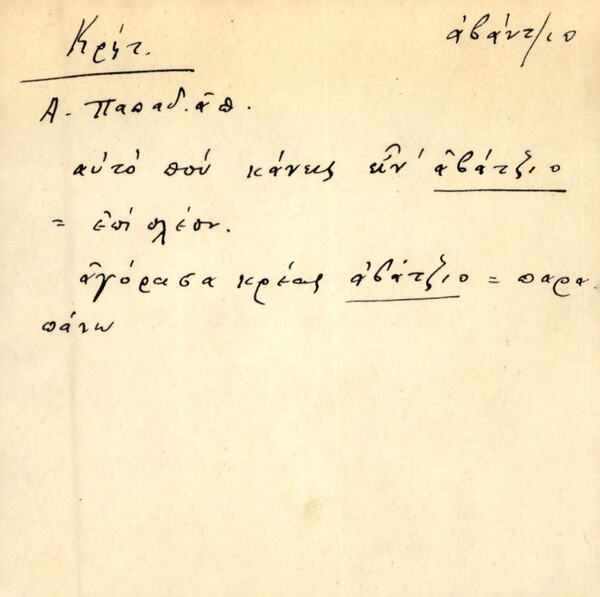 Κρήτ. ἀβάντζιο
Α. Παπαδ. ἀπ.
αὐτὸ ποὺ κάνεις εἶν' ἀβάτζιο
= ἐπὶ πλέον.
ἀγόρασα κρέας ἀβάτζιο = παρα
πάνω